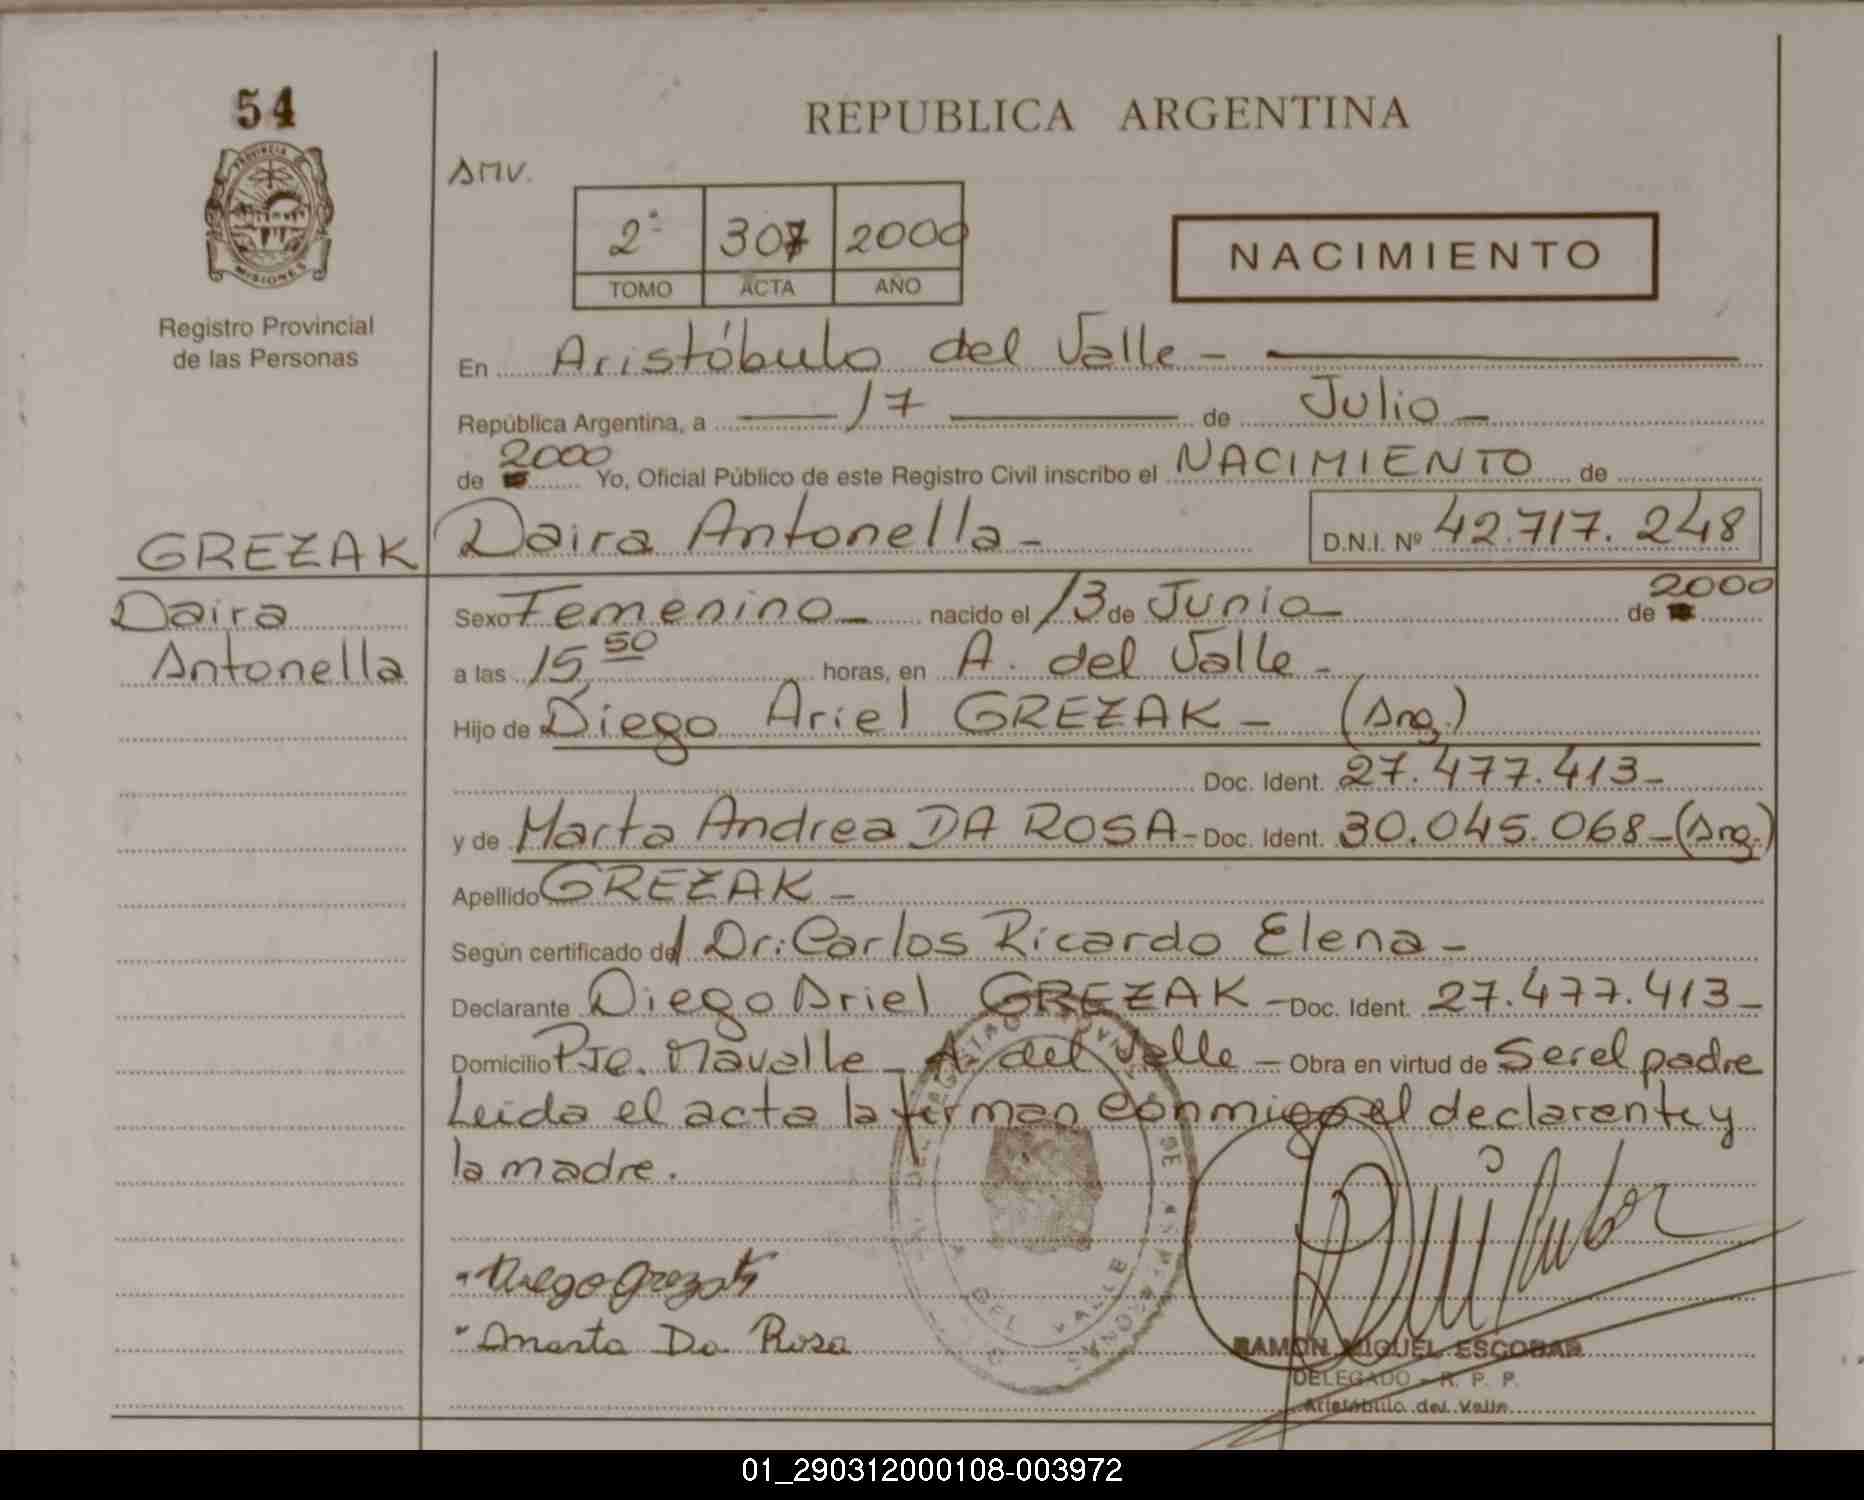 54
PROVINCIA DE
MISIONES
Registro Provincial
de las Personas
REPUBLICA ARGENTINA
AMV.
2ª 307 2000
TOMO ACTA AÑO
NACIMIENTO
En Aristóbulo del Valle -
República Argentina, a 17 de Julio -
de 2000 Yo, Oficial Público de este Registro Civil inscribo el NACIMIENTO de
GREZAK Daira Antonella - D.N.I. Nº 42.717.248
Daira
Antonella
Sexo Femenino - nacido el 13 de Junio - de 2000
a las 15 50 horas, en A. del Valle -
Hijo de Diego Ariel GREZAK - (Arg.)
Doc. Ident. 27.477.413-
y de Marta Andrea DA ROSA - Doc. Ident. 30.045.068 - (Arg.)
Apellido GREZAK -
Según certificado del Dr: Carlos Ricardo Elena -
Declarante Diego Ariel GREZAK - Doc. Ident. 27.477.413 -
Domicilio Pje. Mavalle - A. del Valle - Obra en virtud de Ser el padre
Leída el acta la firman conmigo el declarante y
la madre.
Diego Grezak
Marta Da Rosa
DEL VALLE
RAMON MIGUEL ESCOBAR
DELEGADO - R. P. P.
Aristóbulo del Valle
01_290312000108-003972